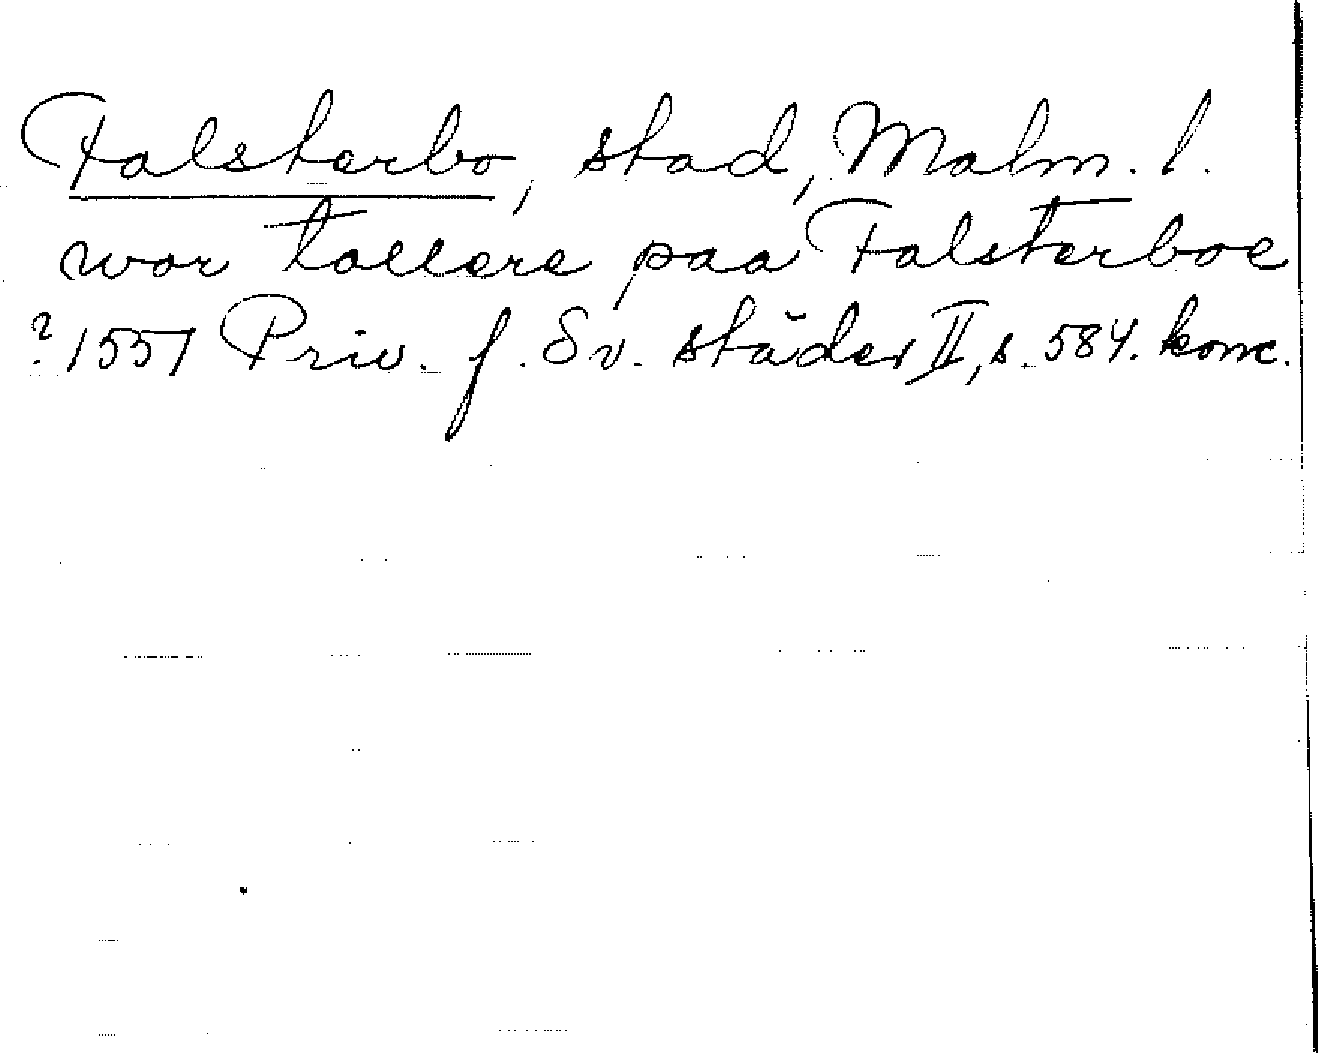 Falsterbo, stad, Malm. l.
wor tollere paa Falsterboe
? 1557 Priv. f. Sv. städer II, s. 584. konc.